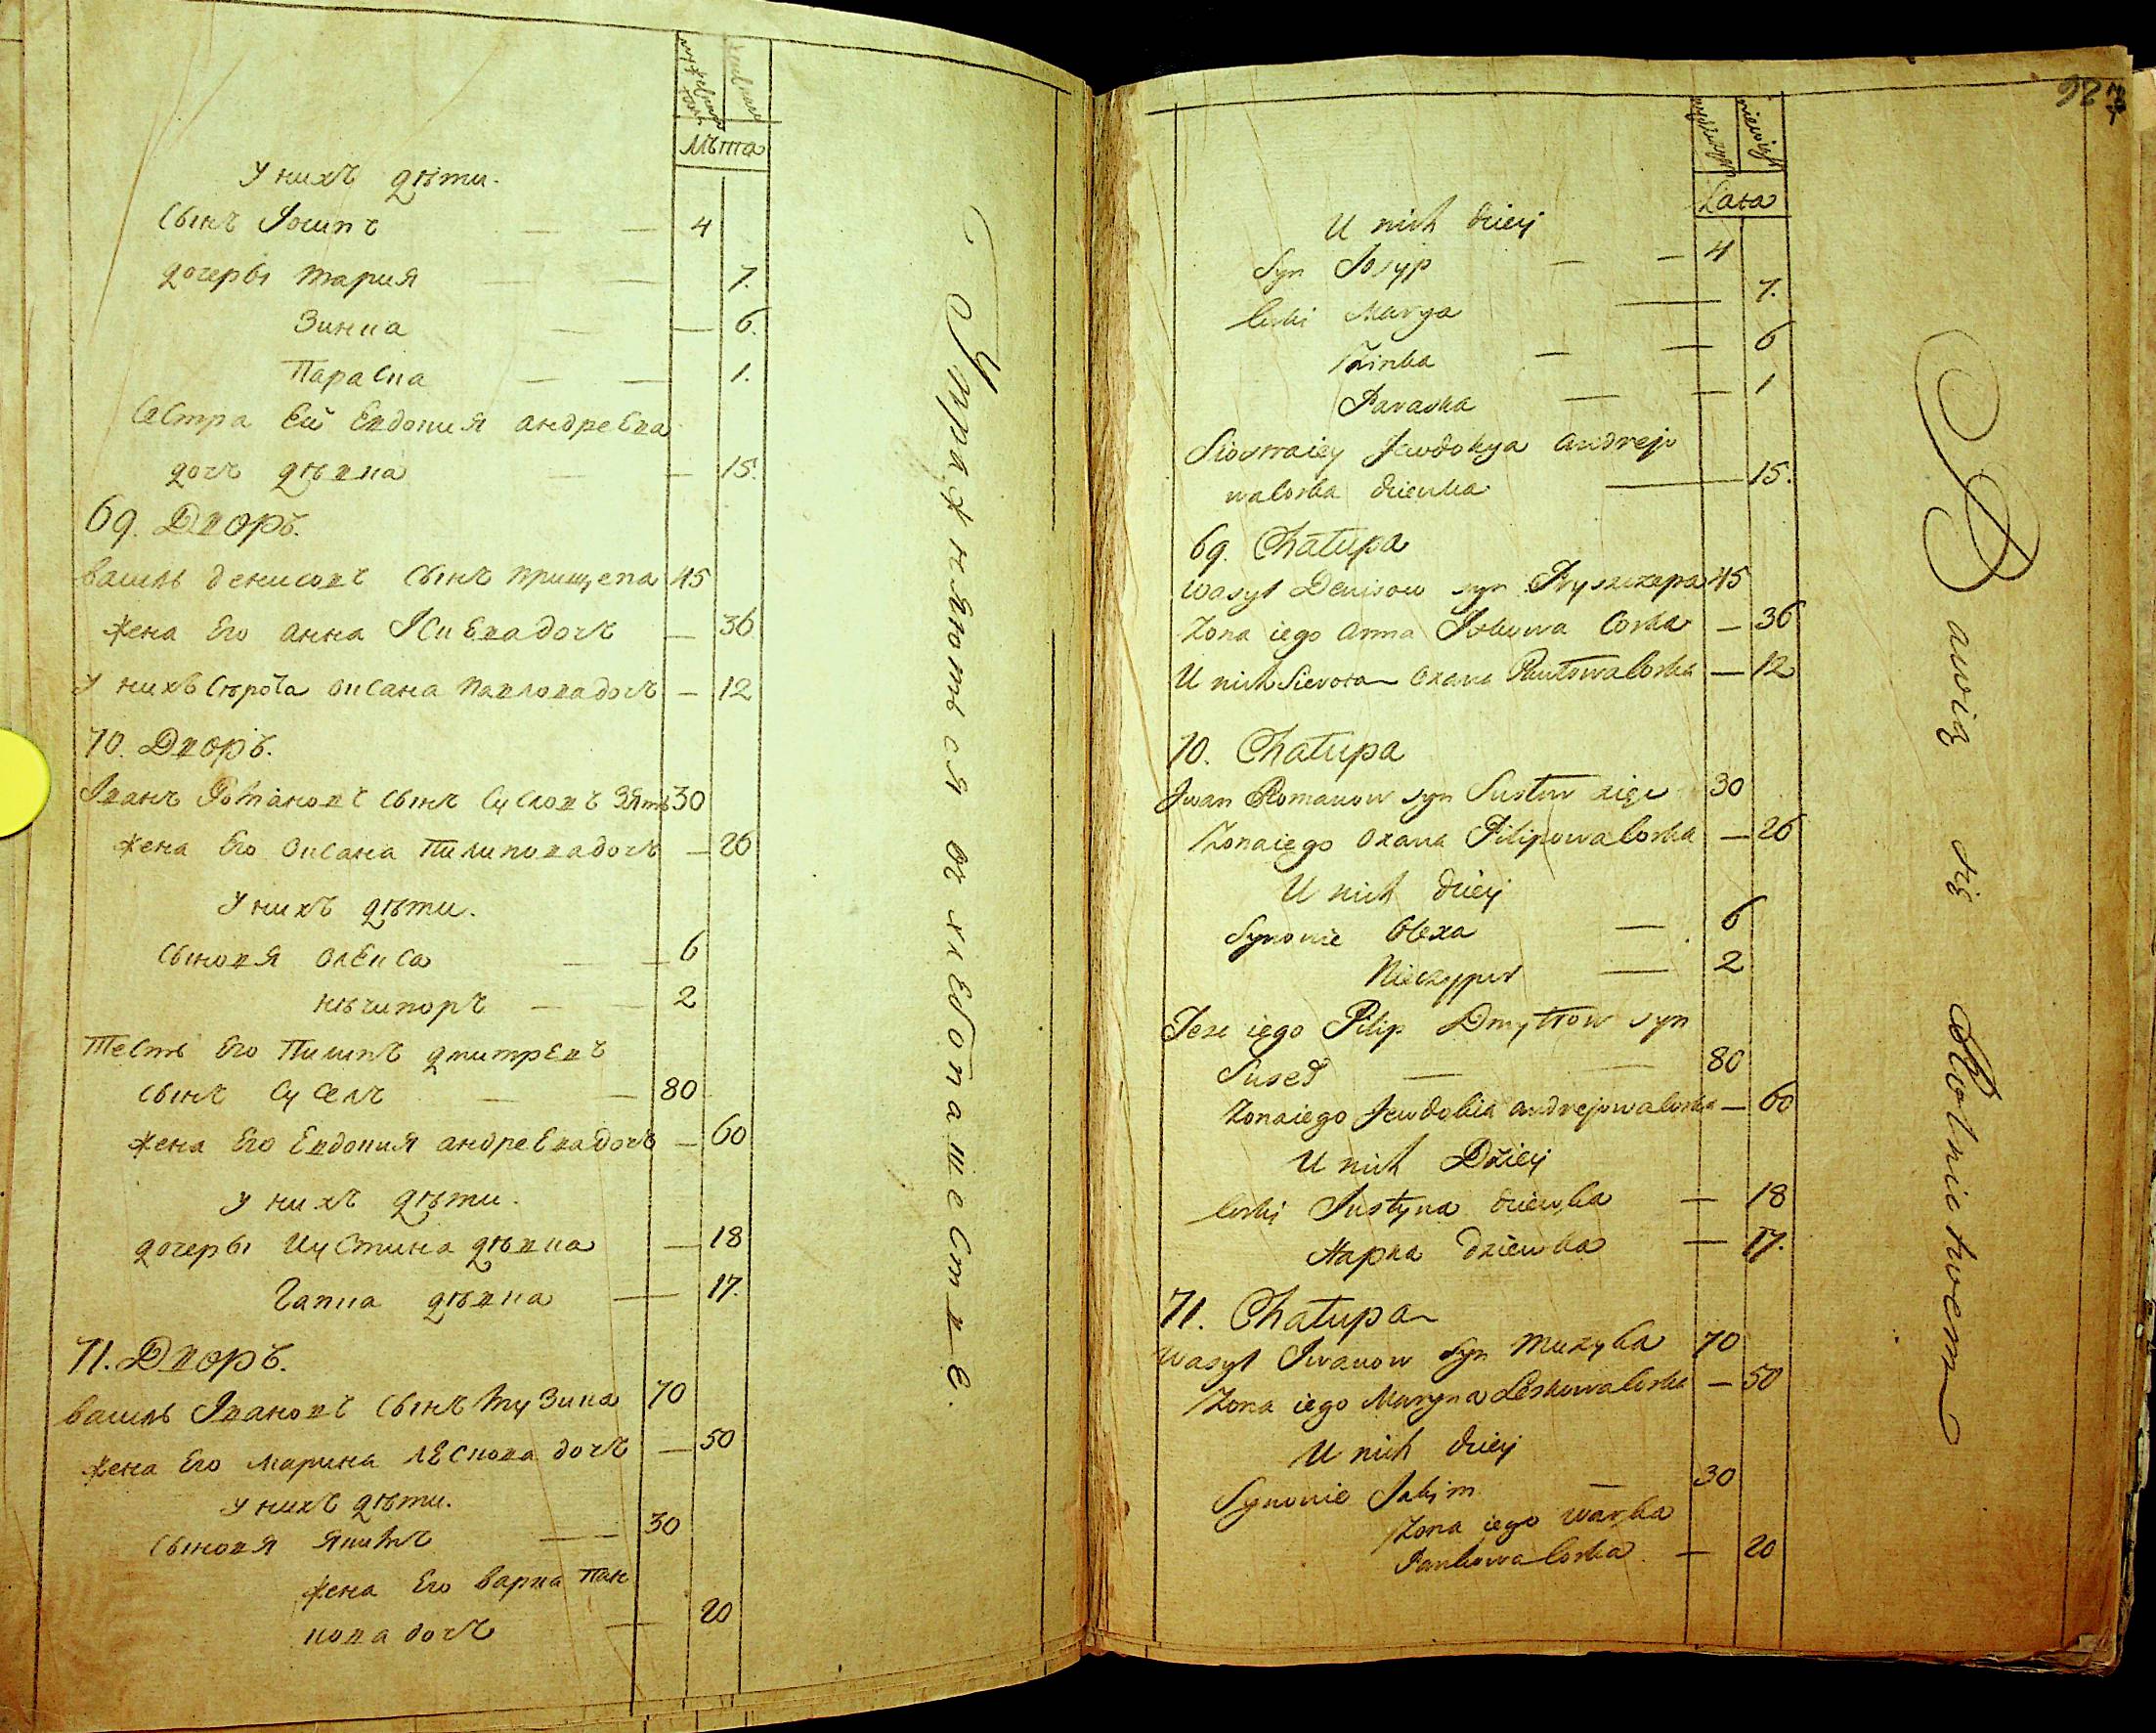 Лѣта
У нихъ дѣти.
Сынъ Іосипъ — — 4
дочеры Мария — — 7.
Зинка — — 6.
Параска — — 1.
Сестра Ей Евдокия андреева
дочь дѣвка — — 15.
69. Дворъ.
Василь денисовъ сынъ прищепа 45
жена Его анна Іскева дочь — 36
У нихъ сѣрота оксана павлова дочь — 12
70. Дворъ.
Іванъ Романовъ сынъ Сусловъ зять 30
жена Его оксана Пилипова дочь — 26
У нихъ дѣти.
сыновя олекса — — 6
нѣчипоръ — — 2
Тесть Его Пилипъ дмитревъ
сынъ суселъ — — 80
жена Его Евдокия андреева дочь — 60
У нихъ дѣти.
дочеры Иустина дѣвка — 18
Гапка дѣвка — 17.
71. Дворъ.
Василь Івановъ сынъ Музика 70
жена Его марина лескова дочь — 50
У нихъ дѣти.
сыновя якимъ — — 30
жена Его варка пан
кова дочь — 20
Упражняются въ хлебопашестве.
92
Lata
U nich dzieci
Syn Josyp — — 4
Corki Marya — 7.
Zinka — — 6
Paraska — — 1
Siostra iey Jewdokya Andrejo
wa Corka dziewka — 15.
69. Chałupa
Wasyl Denisow syn Pryszczepa 45
Zona iego Anna Jskowa Corka — 36
U nich Sierota Oxana Pawłowa Corka — 12
70. Chałupa
Jwan Romanow syn Susłow zięć 30
Zona iego Oxana Pilipowa Corka — 26
U nich dzieci
Synowie Olexa — 6
Nieczypor — 2
Teść iego Pilip Dmytrow syn
Suseł — — 80
Zona iego Jewdokia Andrejowa Corka — 60
U nich Dzieci
Corki Justyna dziewka — 18
Hapka dziewka — 17.
71. Chałupa
Wasyl Jwanow Syn Muzyka 70
Zona iego Maryna Leskowa Corka — 50
U nich dzieci
Synowie Jakim — 30
Zona iego Warka
Pankowa Corka — 20
Bawią się Rolnictwem